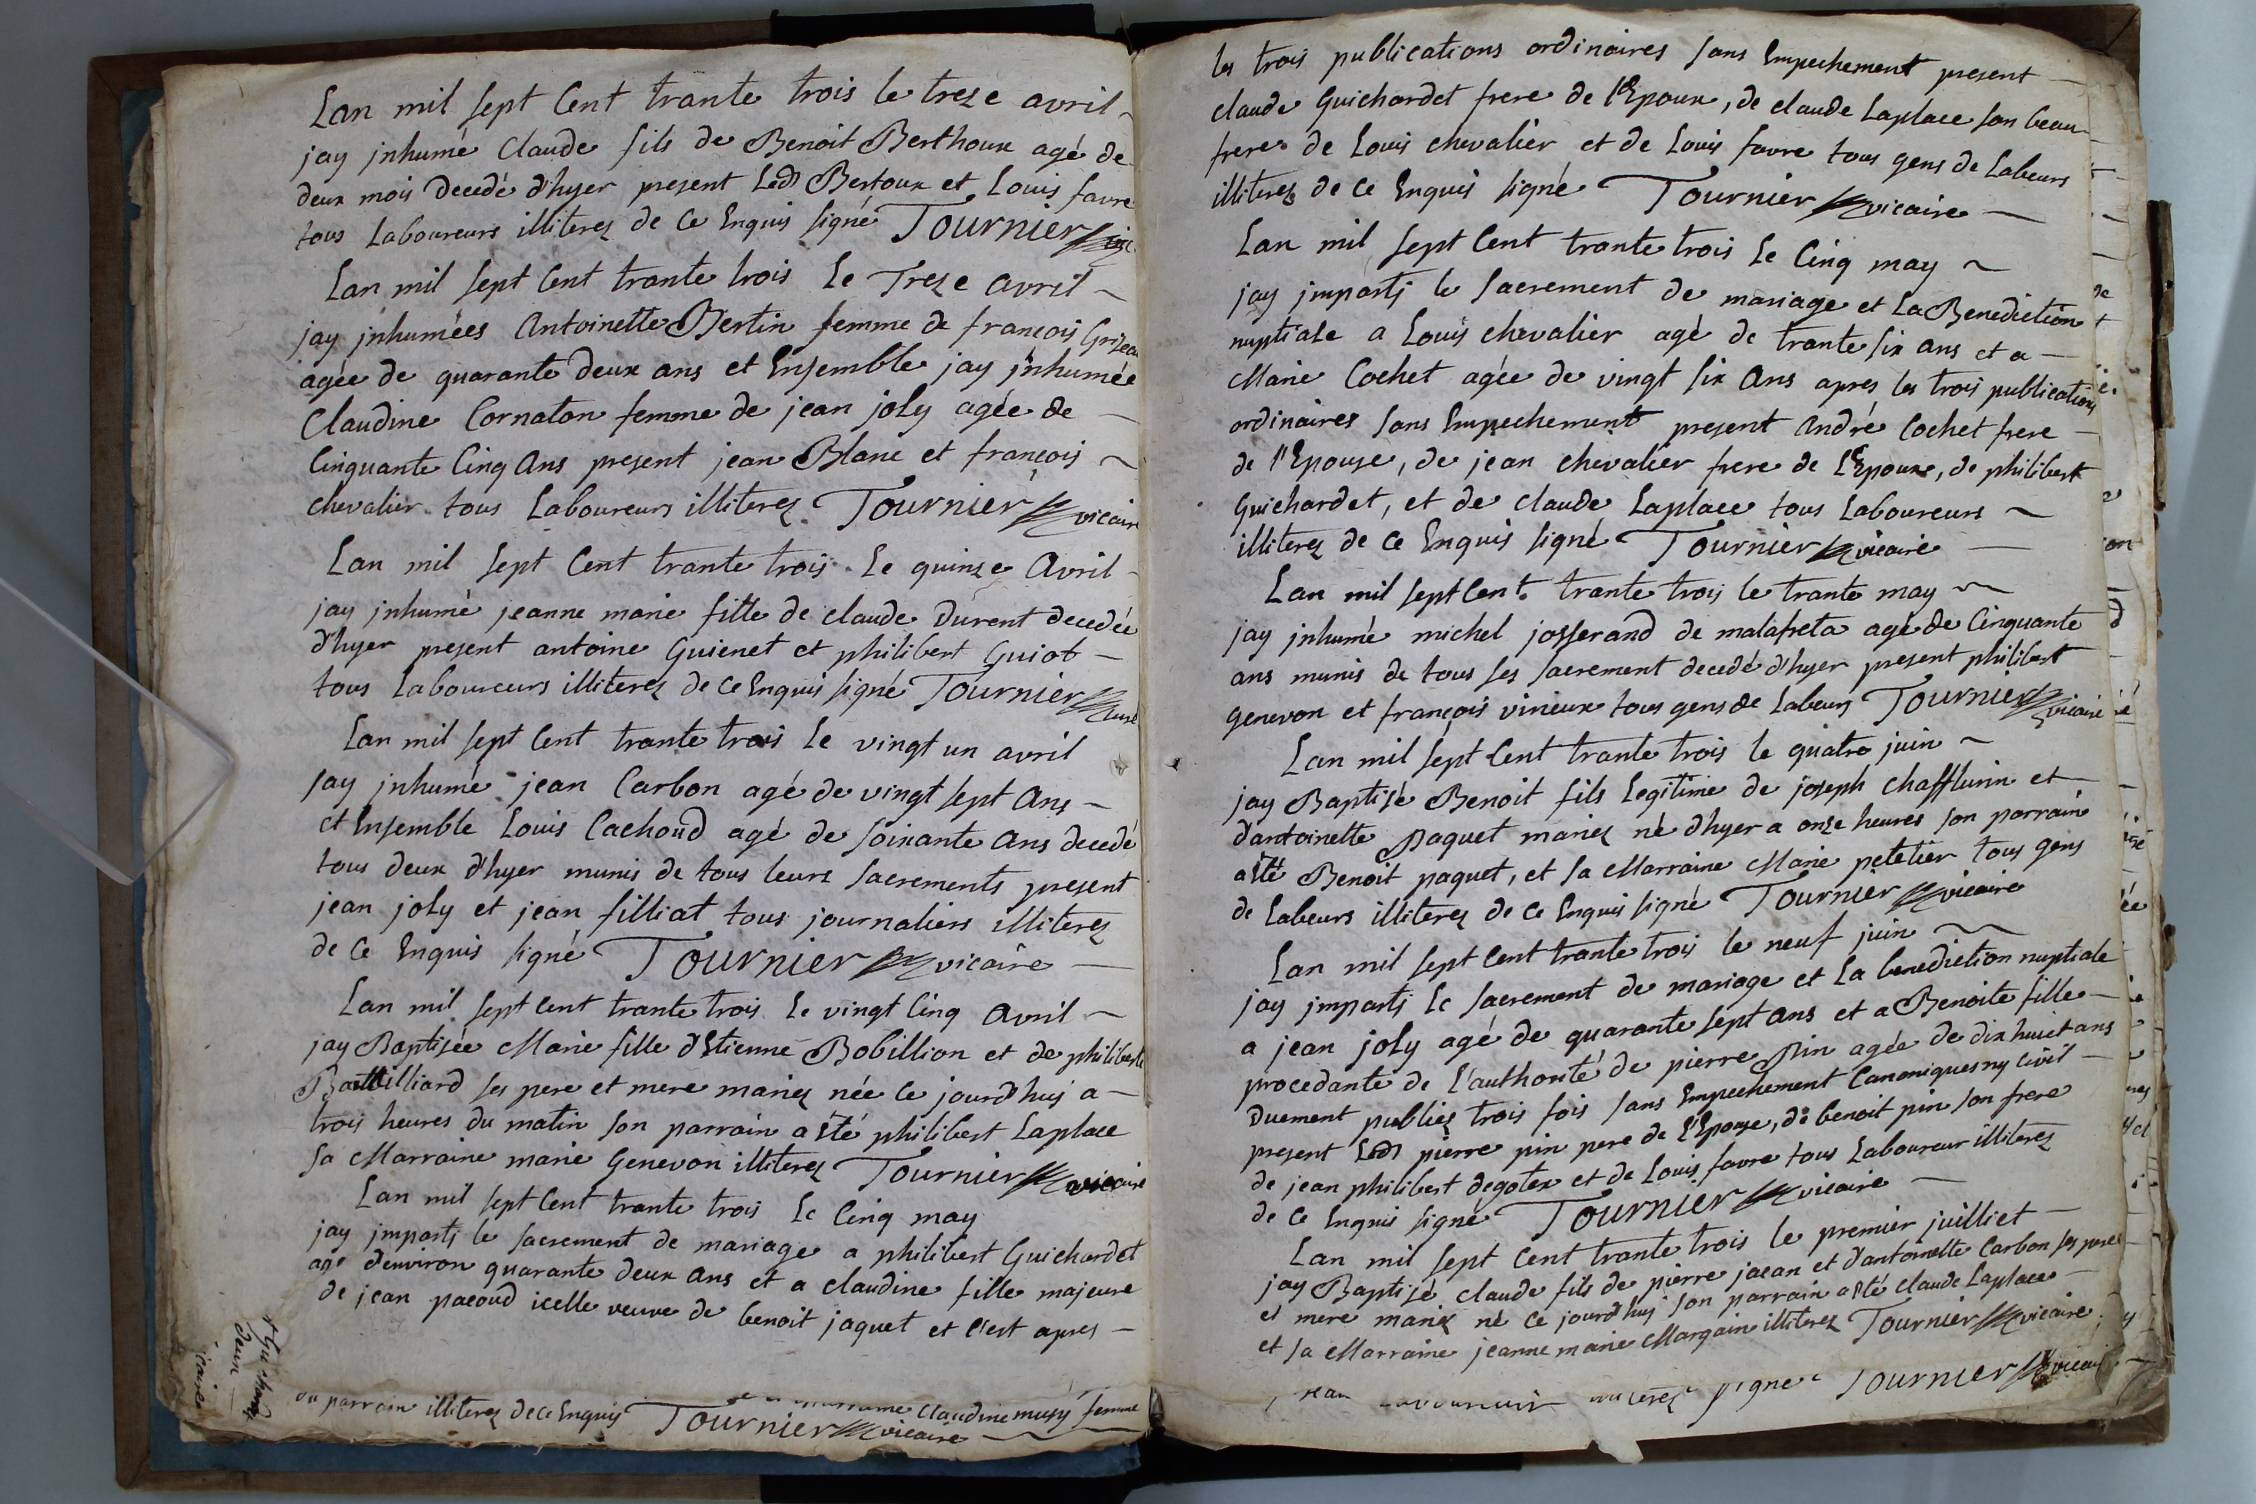 Lan mil sept Cent trante trois le treze avril
jay jnhumé Claude fils de Benoit Berthoux agé de
deux mois decedé d'hyer present Led Bertoux et Louis favre
tous Laboureurs illiterez de Ce Enquis signé Tournier vic
Lan mil sept Cent trante trois Le Treze avril
jay jnhumées Antoinette Bertin femme de françois
agée de quarante deux ans et Ensemble jay jnhumée
Claudine Cornaton femme de jean joly agée de
Cinquante Cinq Ans present jean Blanc et françois
chevalier tous Laboureurs illiterez Tournier vicair
Lan mil sept Cent trante trois Le quinze Avril
jay jnhumé jeanne marie fille de claude Durent decedée
d'hyer present antoine Guienet et philibert Guiot
tous Laboureurs illiterez de Ce Enquis signé Tournier
Lan mil sept Cent trante trois Le vingt un avril
jay jnhumé jean Carbon agé de vingt sept Ans
et Ensemble Louis Cachoud agé de soixante Ans decedé
tous deux d'hyer munis de tous leurs sacrements present
jean joly et jean filliat tous journaliers illiterez
de Ce Enquis signé Tournier vicaire
Lan mil sept Cent trante trois Le vingt Cinq Avril
jay Baptisée Marie fille d'Etienne Bobillion et de philiberte
Battilliard ses pere et mere mariez née Ce jourd'huj a
trois heures du matin son parrain a Eté philibert Laplace
sa Marraine marie Genevon illiterez Tournier vicaire
Lan mil sept Cent trante trois Le Cinq may
jay jmparti le sacrement de mariage a philibert Guichardet
agé d'environ quarante deux ans et a claudine fille majeure
de jean pacoud icelle veuve de benoit jaquet et C'est apres
du parrain illiterez de Ce Enquis marraine Claudine musy femme
Tournier vicaire
les trois publications ordinaires sans Empechement present
claude Guichardet frere de l'Epoux, de claude Laplace son beau
frere de Louis chevalier et de Louis favre tous gens de Labeurs
illiterez de Ce Enquis signé Tournier vicaire
Lan mil sept Cent trante trois Le Cinq may
jay jmparti le Sacrement de mariage et La Benediction
nuptiale a Louis chevalier agé de trante six ans et a
Marie Cochet agée de vingt six Ans apres les trois publications
ordinaires sans Empechement present André Cochet frere
de l'Epouse, de jean chevalier frere de L'Epoux, de philibert
Guichardet, et de Claude Laplace tous Laboureurs
illiterez de Ce Enquis signé Tournier vicaire
Lan mil sept Cent trante trois le trante may
jay jnhumé michel josserand de malafreta agé de Cinquante
ans munis de tous ses sacrement decedé d'hyer present philibert
genevon et françois vineux tous gens de Labeurs Tournier vicaire
Lan mil sept Cent trante trois le quatre juin
jay Baptisé Benoit fils Legitime de joseph chafflurin et
d'antoinette Paquet mariez né d'hyer a onze heures son parrain
a Eté Benoit paquet, et sa Marraine Marie petetier tous gens
de Labeurs illiterez de Ce Enquis signé Tournier vicaire
Lan mil sept Cent trante trois le neuf juin
jay jmparti Le sacrement de mariage et La benediction nuptiale
a jean joly agé de quarante sept Ans et a Benoite fille
procedante de l'authorité de pierre Pin agée de dix huict ans
Duement publiez trois fois sans Empechement Canoniques ny Civil
present Led pierre pin pere de l'Epouse, de benoit pin son frere
de jean philibert degotex et de Louis favre tous Laboureur illiterez
de Ce Enquis signé Tournier vicaire
Lan mil sept Cent trante trois le premier juilliet
jay Baptisé claude fils de pierre jacan et d'antoinette Carbon ses pere
et mere mariez né Ce jourd'huj son parrain a Eté claude Laplace
et sa Marraine jeanne marie Margain illiterez Tournier vicaire
signé Tournier vicair